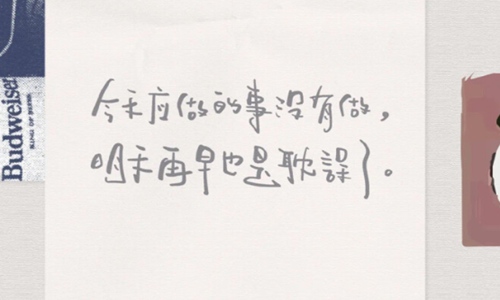 今天应做的事没有做，
明天再早也是耽誤了。
Budweiser
KING OF BEERS